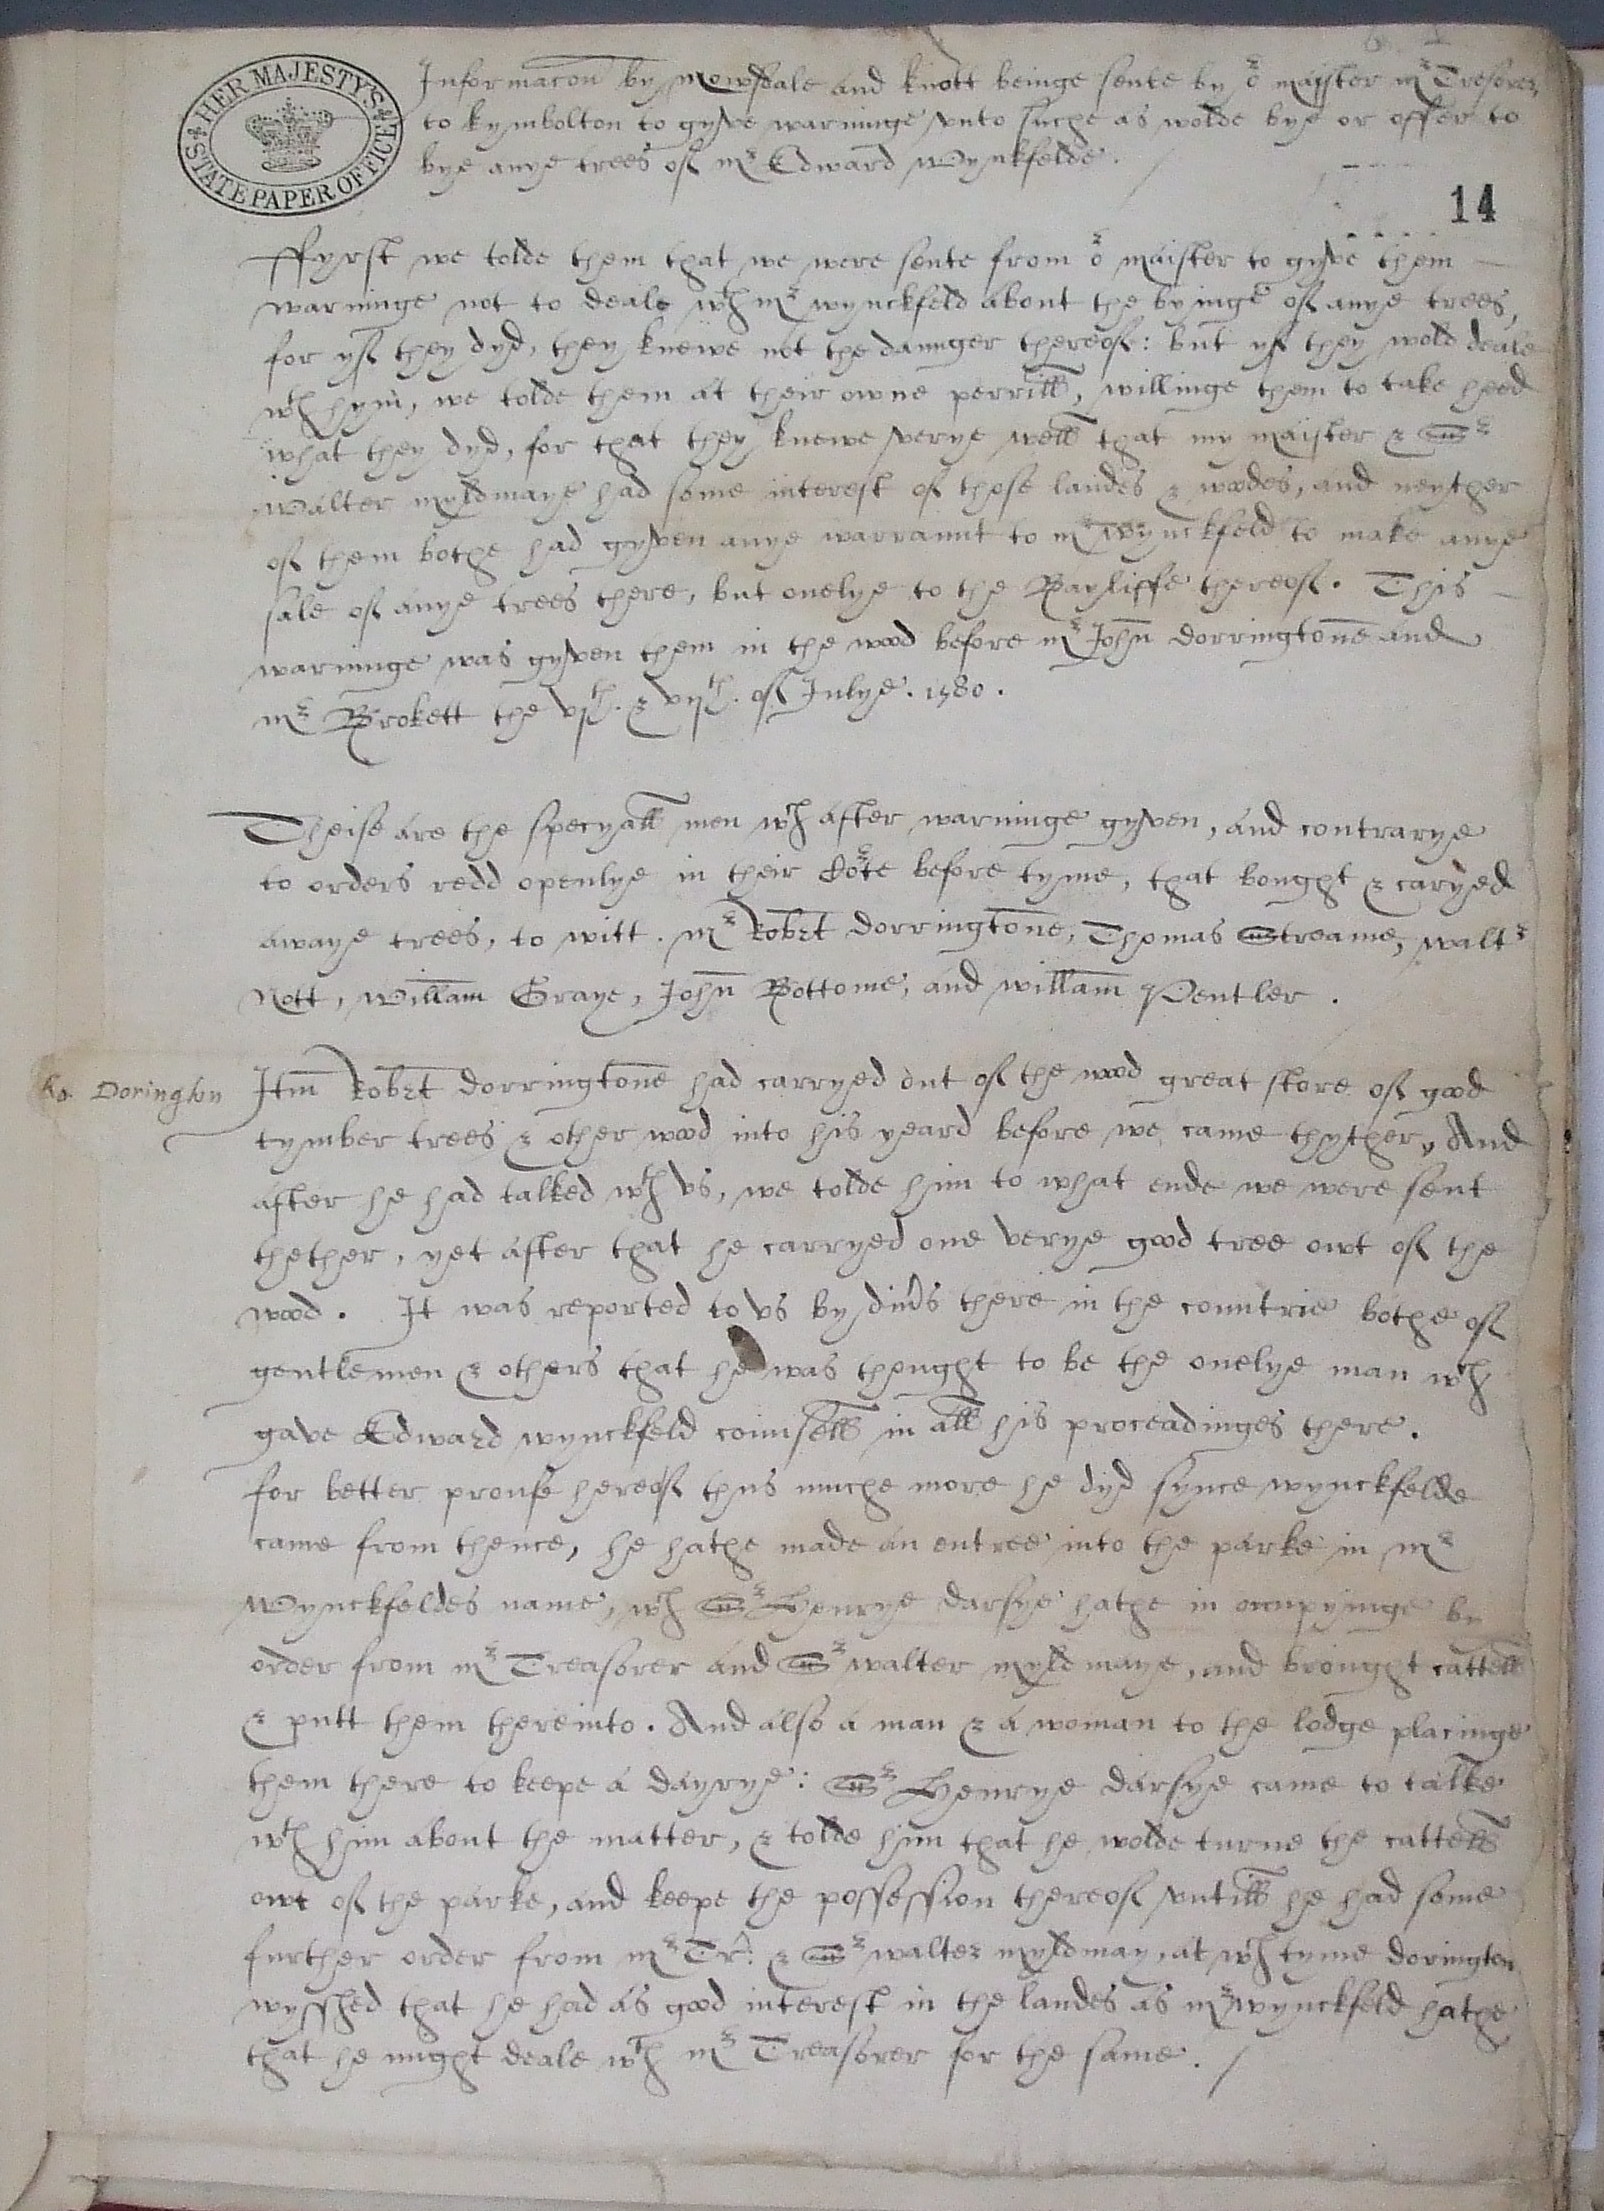 HER MAJESTY'S STATE PAPER OFFICE
Informacon by Mowsdale and Knott beinge sente by or maister mr Tresorer,
to kymbolton to gyve warninge vnto suche as wolde bye or offer to
bye anye trees of mr Edward Wynkfelde.
14
ffyrst we tolde them that we were sente from or maister to gyve them
warninge not to deale wth mr wynckfeld about the byinge of anye trees,
for yf they dyd, they knewe not the daunger thereof: but yf they wold deale
wth hym, we tolde them at their owne perrill, willinge them to take heed
what they dyd, for that they knewe verye well that my maister & Sr
Walter myldmaye had some interest of those landes & woodes, and neyther
of them bothe had gyven anye warraunt to mr wynckfeld to make anye
sale of anye trees there, but onelye to the Bayliffe thereof. This
warninge was gyven them in the wood before mr John dorringtone and
mr Brokett the vjth. & vijth. of Julye. 1580.
Theise are the specyall men wch after warninge gyven, and contrarye
to orders redd openlye in their Corte before tyme, that bought & caryed
awaye trees, to witt. mr Robert dorringtone, Thomas Streame, waltr
Nott, William Graye, John Bottome, and william Pentler.
Ro. Dorington
Itm Robert dorringtone had carryed out of the wood great store of good
tymber trees & other wood into his yeard before we came thyther, And
after he had talked wth vs, we tolde him to what ende we were sent
thether, yet after that he carryed one verye good tree owt of the
wood. It was reported to vs by divers there in the countrie bothe of
gentlemen & others that he was thought to be the onelye man wch
gave Edward wynckfeld counsell in all his proceadinges there.
for better proufe hereof thus muche more he dyd synce wynckfelde
came from thence, he hathe made an entree into the parke in mr
Wynckfeldes name, wch Sr Henrye darsye hathe in occupyinge by
order from mr Treasorer and Sr walter myldmaye, and brought cattell
& putt them thereinto. And also a man & a woman to the lodge placinge
them there to keepe a dayrye: Sr Henrye darsye came to talke
wth him about the matter, & tolde him that he wolde turne the cattell
owt of the parke, and keepe the possession thereof vntill he had some
further order from mr Tr: & Sr walter myldmay, at wch tyme dorington
wysshed that he had as good interest in the landes as mr wynckfeld hathe
that he might deale wth mr Treasorer for the same.